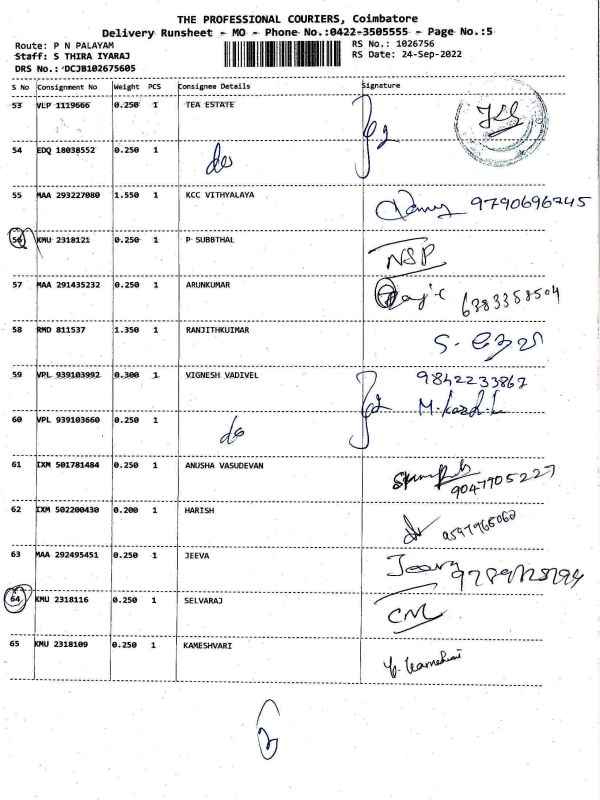 THE PROFESSIONAL COURIERS, Coimbatore
Delivery Runsheet - MO - Phone No.:0422-3505555 - Page No.:5
Route: P N PALAYAM RS No.: 1026756
Staff: S THIRA IYARAJ RS Date: 24-Sep-2022
DRS No.: DCJB102675605
S No Consignment No Weight PCS Consignee Details Signature
53 VLP 1119666 0.250 1 TEA ESTATE
54 EDQ 18038552 0.250 1 do
55 MAA 293227080 1.550 1 KCC VITHYALAYA 9790696745
56 KMU 2318121 0.250 1 P SUBBTHAL NSP
57 MAA 291435232 0.250 1 ARUNKUMAR 6383358504
58 RMD 811537 1.350 1 RANJITHKUIMAR
59 VPL 939103992 0.300 1 VIGNESH VADIVEL 9842233867
60 VPL 939103660 0.250 1 do
61 IXM 501781484 0.250 1 ANUSHA VASUDEVAN 9047705227
62 IXM 502200430 0.200 1 HARISH
63 MAA 292495451 0.250 1 JEEVA
64 KMU 2318116 0.250 1 SELVARAJ CM
65 KMU 2318109 0.250 1 KAMESHVARI